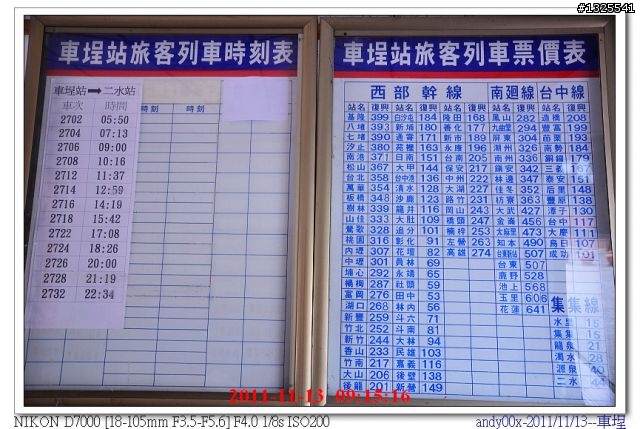 #1325541
車埕站旅客列車時刻表
車埕站➡二水站
車次 時間
時刻 時刻
2702 05:50
2704 07:13
2706 09:00
2708 10:16
2712 11:37
2714 12:59
2716 14:19
2718 15:42
2722 17:08
2724 18:26
2726 20:00
2728 21:19
2732 22:34
車埕站旅客列車票價表
西部幹線 南迴線 台中線
站名 復興 站名 復興 站名 復興 站名 復興 站名 復興
基隆 399 白沙屯 184 隆田 168 鳳山 282 造橋 208
八堵 393 新埔 180 善化 177 九曲堂 294 豐富 199
七堵 390 通霄 171 新市 189 屏東 304 苗栗 193
汐止 380 苑裡 163 永康 196 潮州 326 南勢 184
南港 371 日南 151 台南 205 南州 336 銅鑼 179
松山 367 大甲 144 保安 217 鎮安 342 三義 167
台北 358 台中港 136 中洲 222 林邊 347 泰安 151
萬華 354 清水 128 大湖 227 佳冬 352 后里 148
板橋 348 沙鹿 123 路竹 231 枋寮 363 豐原 138
樹林 339 龍井 116 岡山 243 大武 427 潭子 130
山佳 333 大肚 109 橋頭 247 金崙 456 台中 117
鶯歌 328 追分 102 楠梓 253 太麻里 473 大慶 111
桃園 316 彰化 91 左營 263 知本 490 烏日 107
內壢 307 花壇 82 高雄 274 台東新站 507 成功 101
中壢 301 員林 69 台東 507
埔心 292 永靖 65 鹿野 528
楊梅 287 社頭 59 池上 568
富岡 276 田中 53 玉里 606
湖口 268 林內 56 花蓮 641 集集線
新豐 259 斗六 71 水里 15
竹北 252 斗南 81 集集 15
新竹 244 大林 94 龍泉 21
香山 233 民雄 103 濁水 28
竹南 217 嘉義 116 源泉 40
大山 206 後壁 138 二水 44
後龍 201 新營 149
2011-11-13 09:15:16
NIKON D7000 [18-105mm F3.5-F5.6] F4.0 1/8s ISO200
andy00x-2011/11/13--車埕